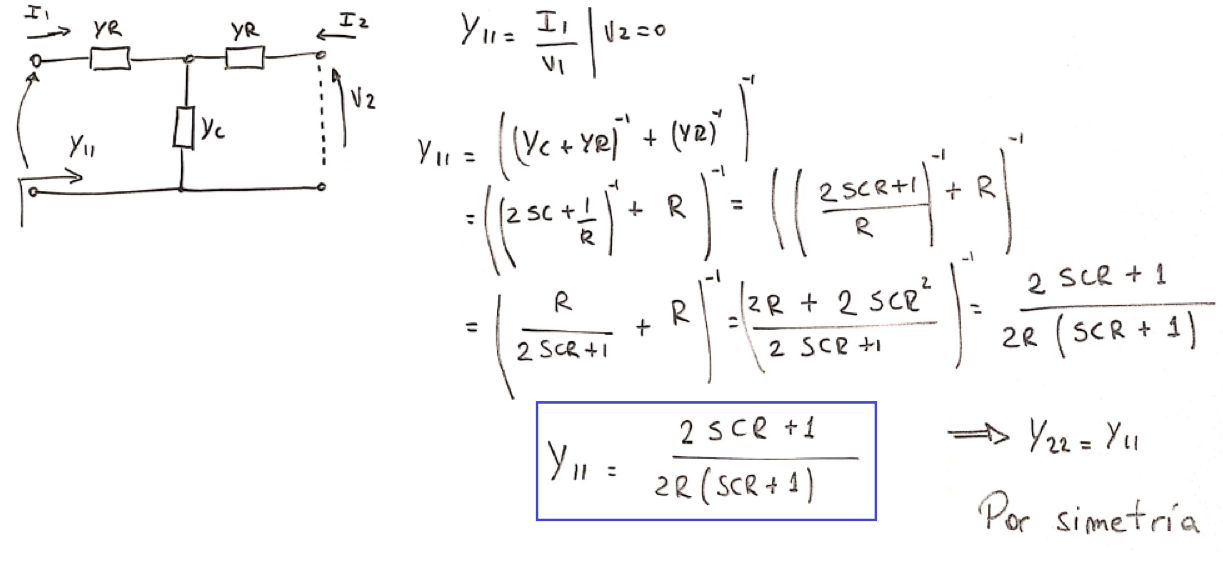 I1 YR YR I2
V2
YC
Y11
Y11 = I1/V1 | V2=0
Y11 = ((YC + YR)^-1 + (YR)^-1)^-1
= ((2SC + 1/R)^-1 + R)^-1 = (((2SCR+1)/R)^-1 + R)^-1
= (R/(2SCR+1) + R)^-1 = ((2R + 2SCR^2)/(2SCR+1))^-1 = (2SCR + 1)/(2R(SCR + 1))
Y11 = (2SCR + 1)/(2R(SCR + 1)) ⇒ Y22 = Y11
Por simetría